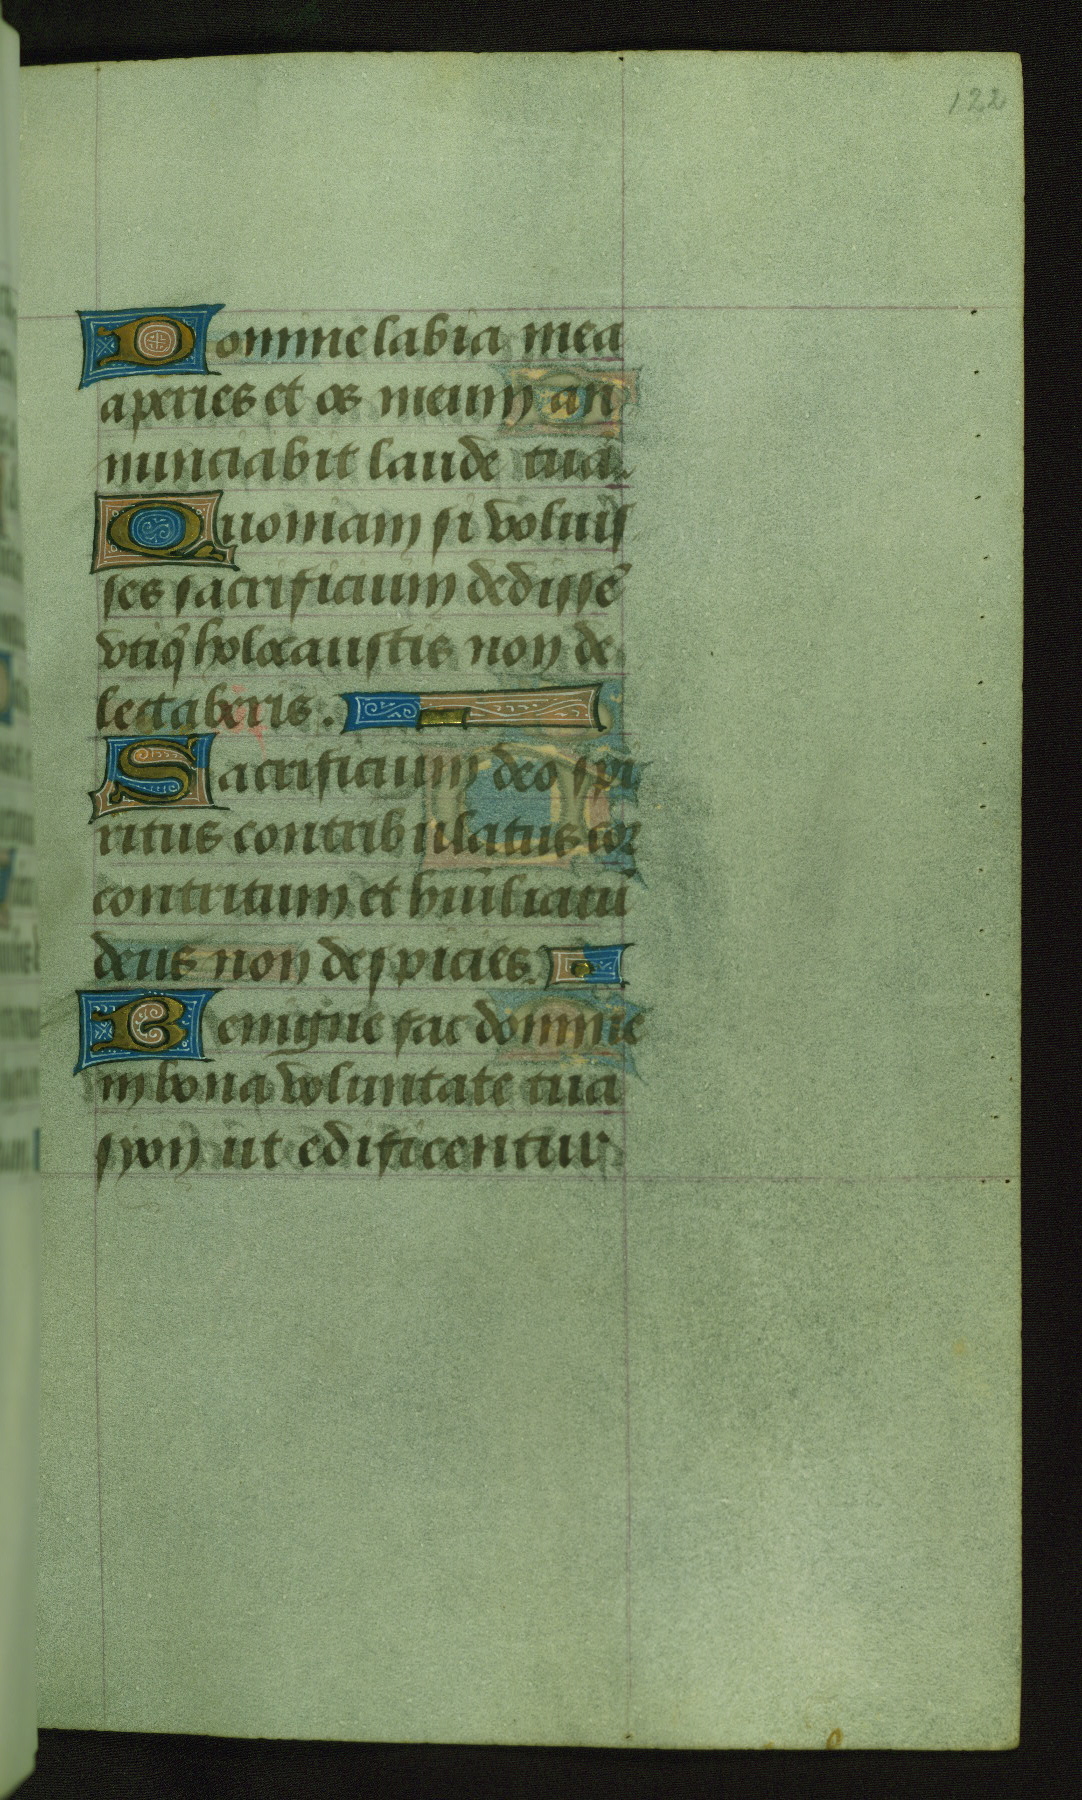 122
Domine labia mea
aperies et os meum an
nunciabit laudē tuā
Quoniam si voluis
ses sacrificium dedissē
vtiq̄ holocaustis non de
lectaberis.
Sacrificium deo spi
ritus contribulatus cor
contritum et humiliatū
deus non despicies.
Benigne fac domine
in bona voluntate tua
syon ut edificentur